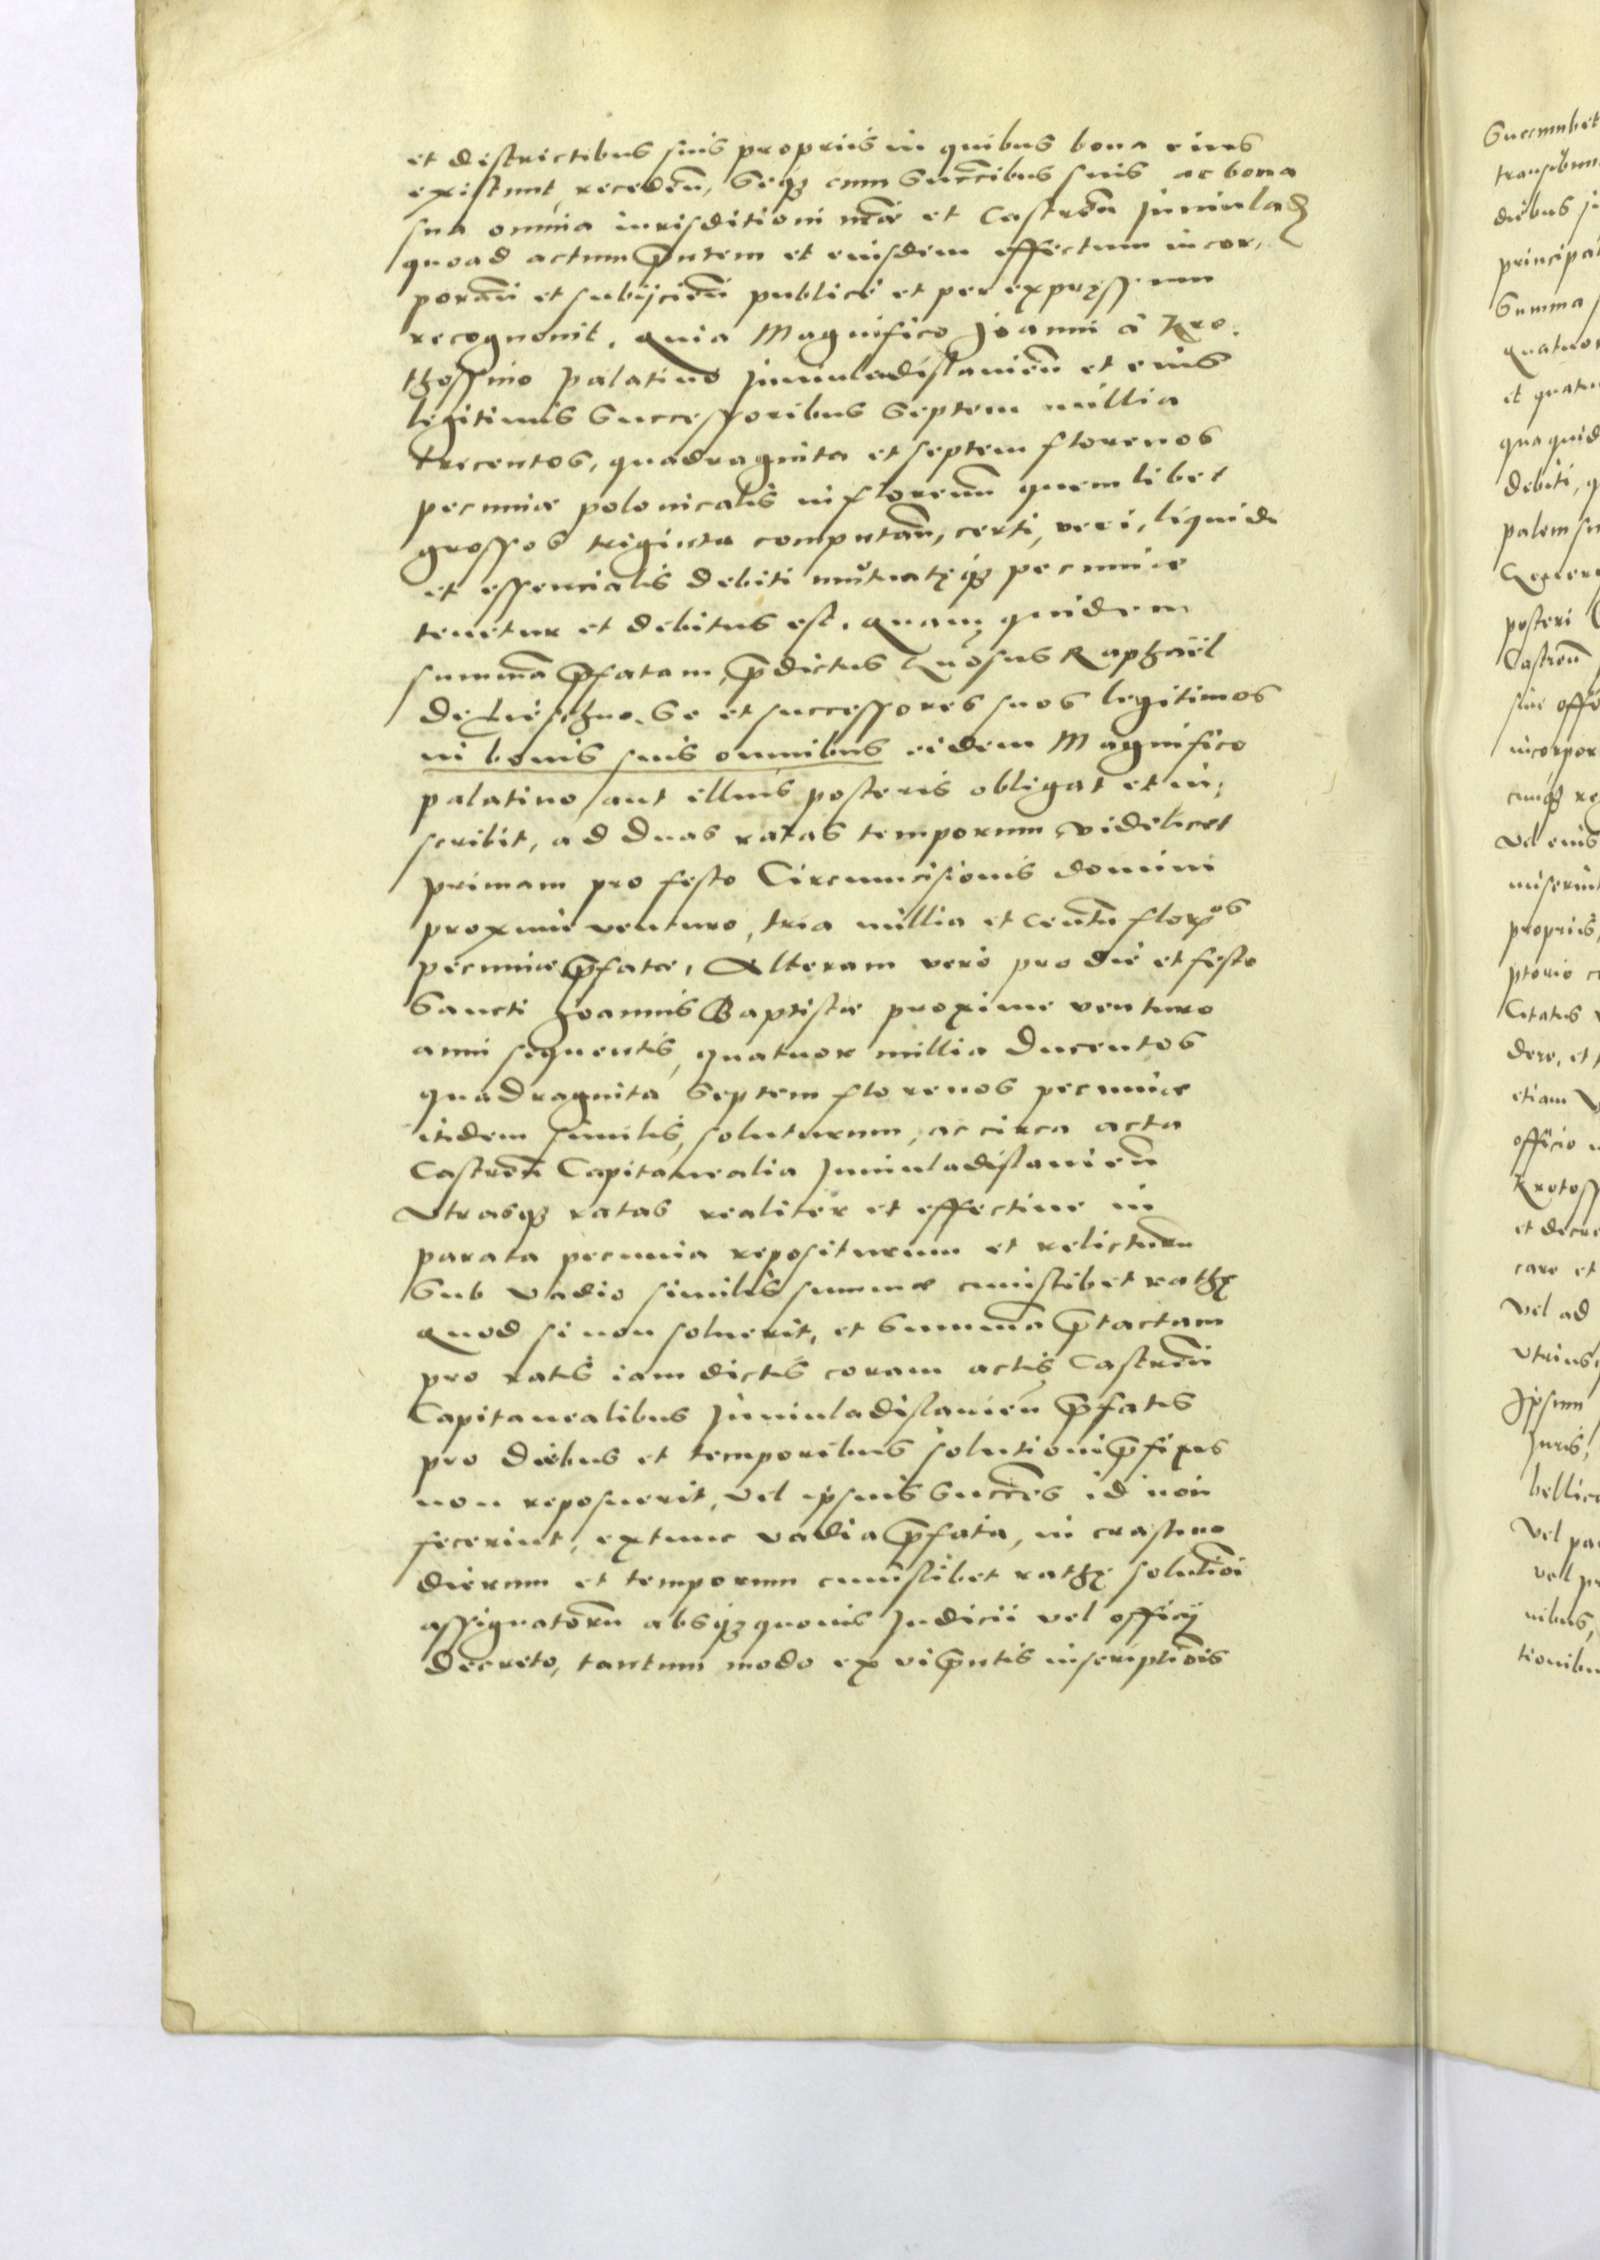 et districtibus suis propriis in quibus bona eius
existunt, receden̄, Seqʒ cum Succībus suis ac bona
sua omnia iurisditioni nr̄ae et Castren̄ Juniuladʒ
quoad actum p̄ntem et eiusdem effectum incor,
poran̄ et subijcien̄ publicé et per expręssum
recognouit, quia Magnifico Joanni á Kro,
thossino palatino Juniuladislauien̄ et eius
legitimis Successoribus Septem millia
trecentos, quadraginta et septem florenos
pecuniae polonicalis in florenū quem libet
grossos triginta computan̄, certi, veri, liquidi
et essencialis debiti mutuatęqʒ pecuniae
tenetur et debitus est. Quam quidem
summā p̄fatam, p̄dictus Gn̄osus Raphaël
de Lieschno. Se et successores suos legitimos
in bonis suis omnibus eidem Magnifico
palatino, aut illius posteris obligat et in,
scribit, ad duas ratas temporum, videlicet
primam pro festo Circumcisionis domini
proximi venturo, tria millia et Centū florōs
pecuniae p̄fatae, Alteram vero pro die et festo
Sancti Joannis Baptistae proxime venturo
anni sequentis, quatuor millia ducentos
quadraginta Septem florenos pecuniae
itidem similis, soluturum, ac circa acta
Castren̄ Capitanealia Juniuladislauien̄
Vtrasqʒ ratas realiter et effectiue in
parata pecunia repositurum et relicturū
Sub vadio similis summae cuiuslibet rathę
Quod si non soluerit, et Summā p̄tactam
pro ratis iam dictis coram actis Castren̄
Capitanealibus Juniuladislauien̄ p̄fatis
pro diebus et temporibus solutioni p̄fixis
non reposuerit, vel ipsius Succēs id non
fecerint, extunc vadia p̄fata, in crastino
dierum et temporum cuiuslibet rathę solutīoi
assignatorū absqʒ quouis Judicii vel officij
decreto, tantum modo ex vi p̄ntis inscriptiōis
Succumbet
principal
Summa
debiti, q
posteri
Castren̄
Vel eius
propriis,
Citatus
etiam
officio
et decre
Vel ad
Ipsum
Juris,
Vel pa
nibus,